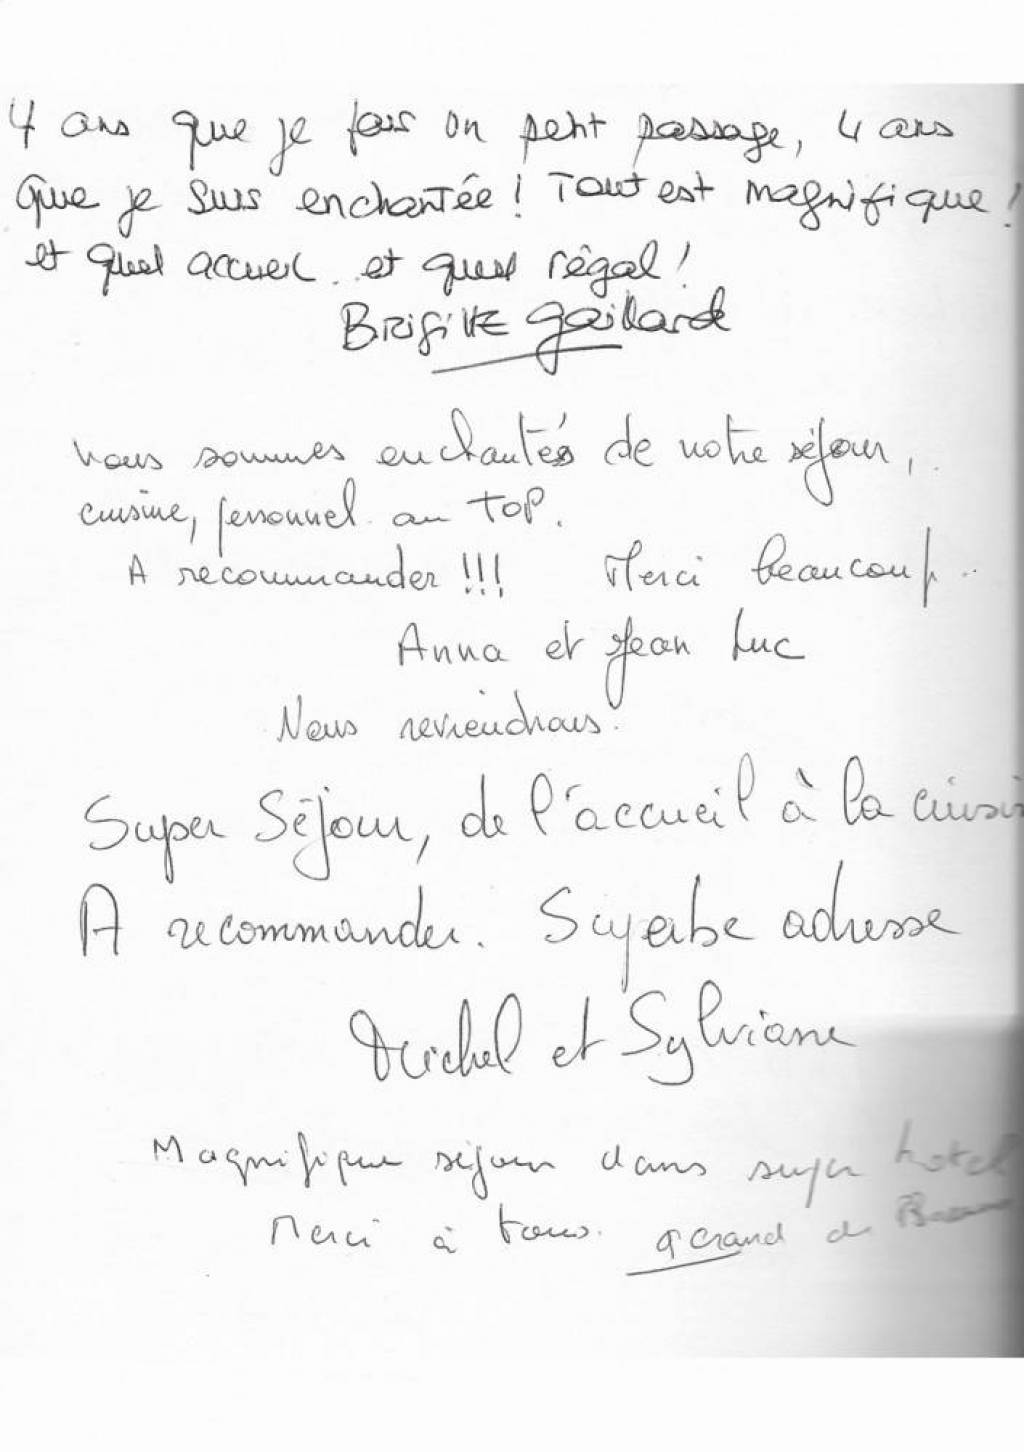 4 ans que je fais un petit passage, 4 ans
que je suis enchantée ! Tout est magnifique !
et quel accueil et quel régal !
Brigitte Gaillard
Nous sommes enchantés de notre séjour,
cuisine, personnel au TOP.
A recommander !!! Merci beaucoup..
Anna et Jean Luc
Nous reviendrons.
Super Séjour, de l'accueil à la cuisi
A recommander. Superbe adresse
Michel et Sylviane
Magnifique séjour dans super hotel
Merci à tous.